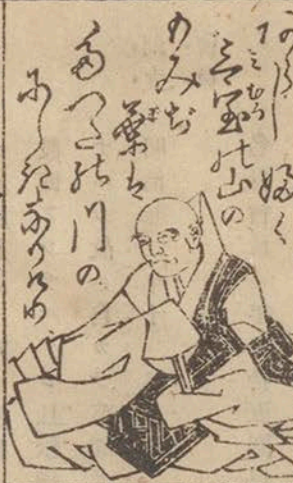 あらし ふく
三室の山の
もみぢ
葉は
たつたの川の
にしきなりけり